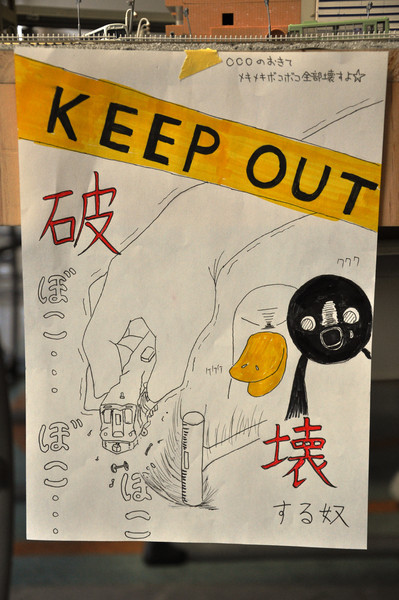 ○○○のおきて
メキメキボコボコ全部壊すよ☆
KEEP OUT
破
ぼこ...
ぼこ...
ぼこ
ククク
ククク
壊
する奴